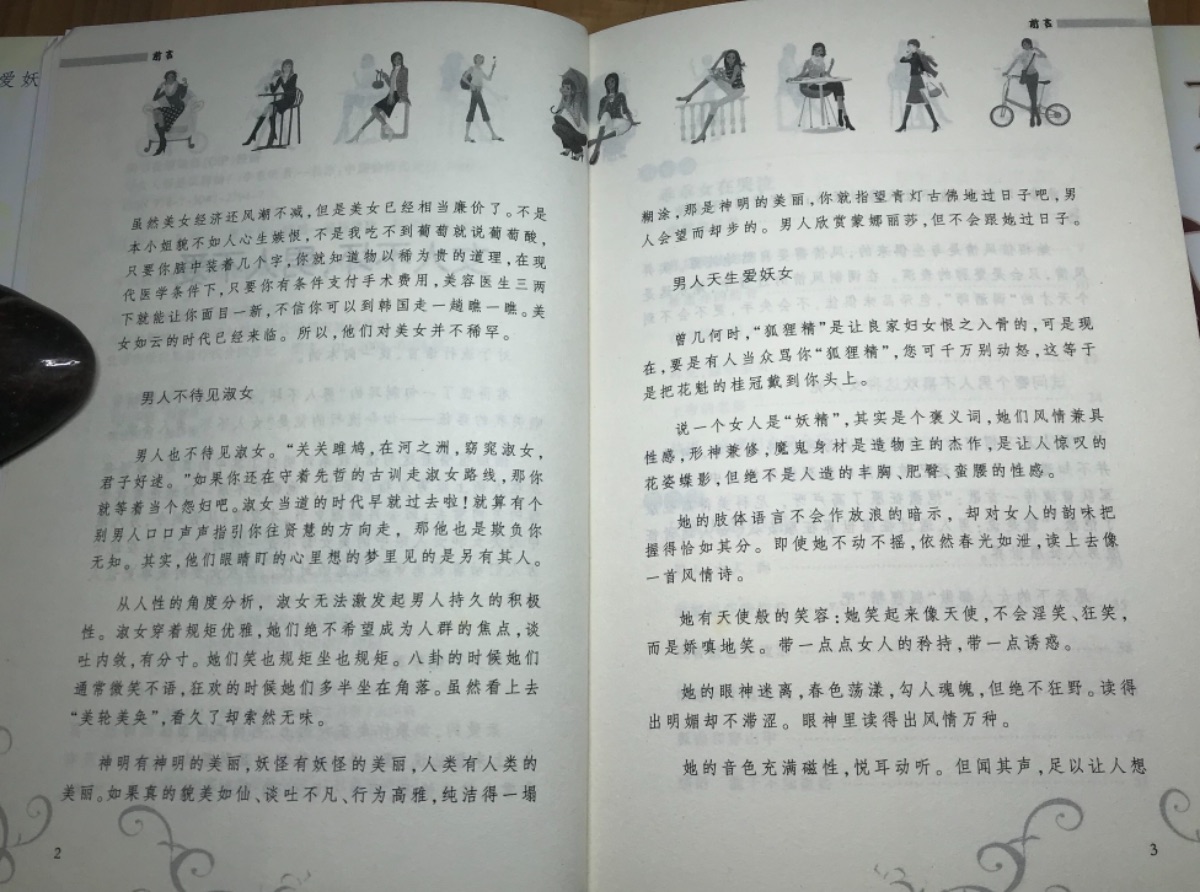 爱妖
前言
虽然美女经济还风潮不减,但是美女已经相当廉价了。不是
本小姐貌不如人心生嫉恨,不是我吃不到葡萄就说葡萄酸,
只要你脑中装着几个字,你就知道物以稀为贵的道理,在现
代医学条件下,只要你有条件支付手术费用,美容医生三两
下就能让你面目一新,不信你可以到韩国走一趟瞧一瞧。美
女如云的时代已经来临。所以,他们对美女并不稀罕。
男人不待见淑女
男人也不待见淑女。“关关雎鸠,在河之洲,窈窕淑女,
君子好逑。”如果你还在守着先哲的古训走淑女路线,那你
就等着当个怨妇吧。淑女当道的时代早就过去啦!就算有个
别男人口口声声指引你往贤慧的方向走,那他也是欺负你
无知。其实,他们眼睛盯的心里想的梦里见的是另有其人。
从人性的角度分析,淑女无法激发起男人持久的积极
性。淑女穿着规矩优雅,她们绝不希望成为人群的焦点,谈
吐内敛,有分寸。她们笑也规矩坐也规矩。八卦的时候她们
通常微笑不语,狂欢的时候她们多半坐在角落。虽然看上去
“美轮美奂”,看久了却索然无味。
神明有神明的美丽,妖怪有妖怪的美丽,人类有人类的
美丽。如果真的貌美如仙、谈吐不凡、行为高雅,纯洁得一塌
2
前言
糊涂,那是神明的美丽,你就指望青灯古佛地过日子吧,男
人会望而却步的。男人欣赏蒙娜丽莎,但不会跟她过日子。
男人天生爱妖女
曾几何时,“狐狸精”是让良家妇女恨之入骨的,可是现
在,要是有人当众骂你“狐狸精”,您可千万别动怒,这等于
是把花魁的桂冠戴到你头上。
说一个女人是“妖精”,其实是个褒义词,她们风情兼具
性感,形神兼修,魔鬼身材是造物主的杰作,是让人惊叹的
花姿蝶影,但绝不是人造的丰胸、肥臀、蛮腰的性感。
她的肢体语言不会作放浪的暗示,却对女人的韵味把
握得恰如其分。即使她不动不摇,依然春光如泄,读上去像
一首风情诗。
她有天使般的笑容:她笑起来像天使,不会淫笑、狂笑,
而是娇嗔地笑。带一点点女人的矜持,带一点诱惑。
她的眼神迷离,春色荡漾,勾人魂魄,但绝不狂野。读得
出明媚却不滞涩。眼神里读得出风情万种。
她的音色充满磁性,悦耳动听。但闻其声,足以让人想
3